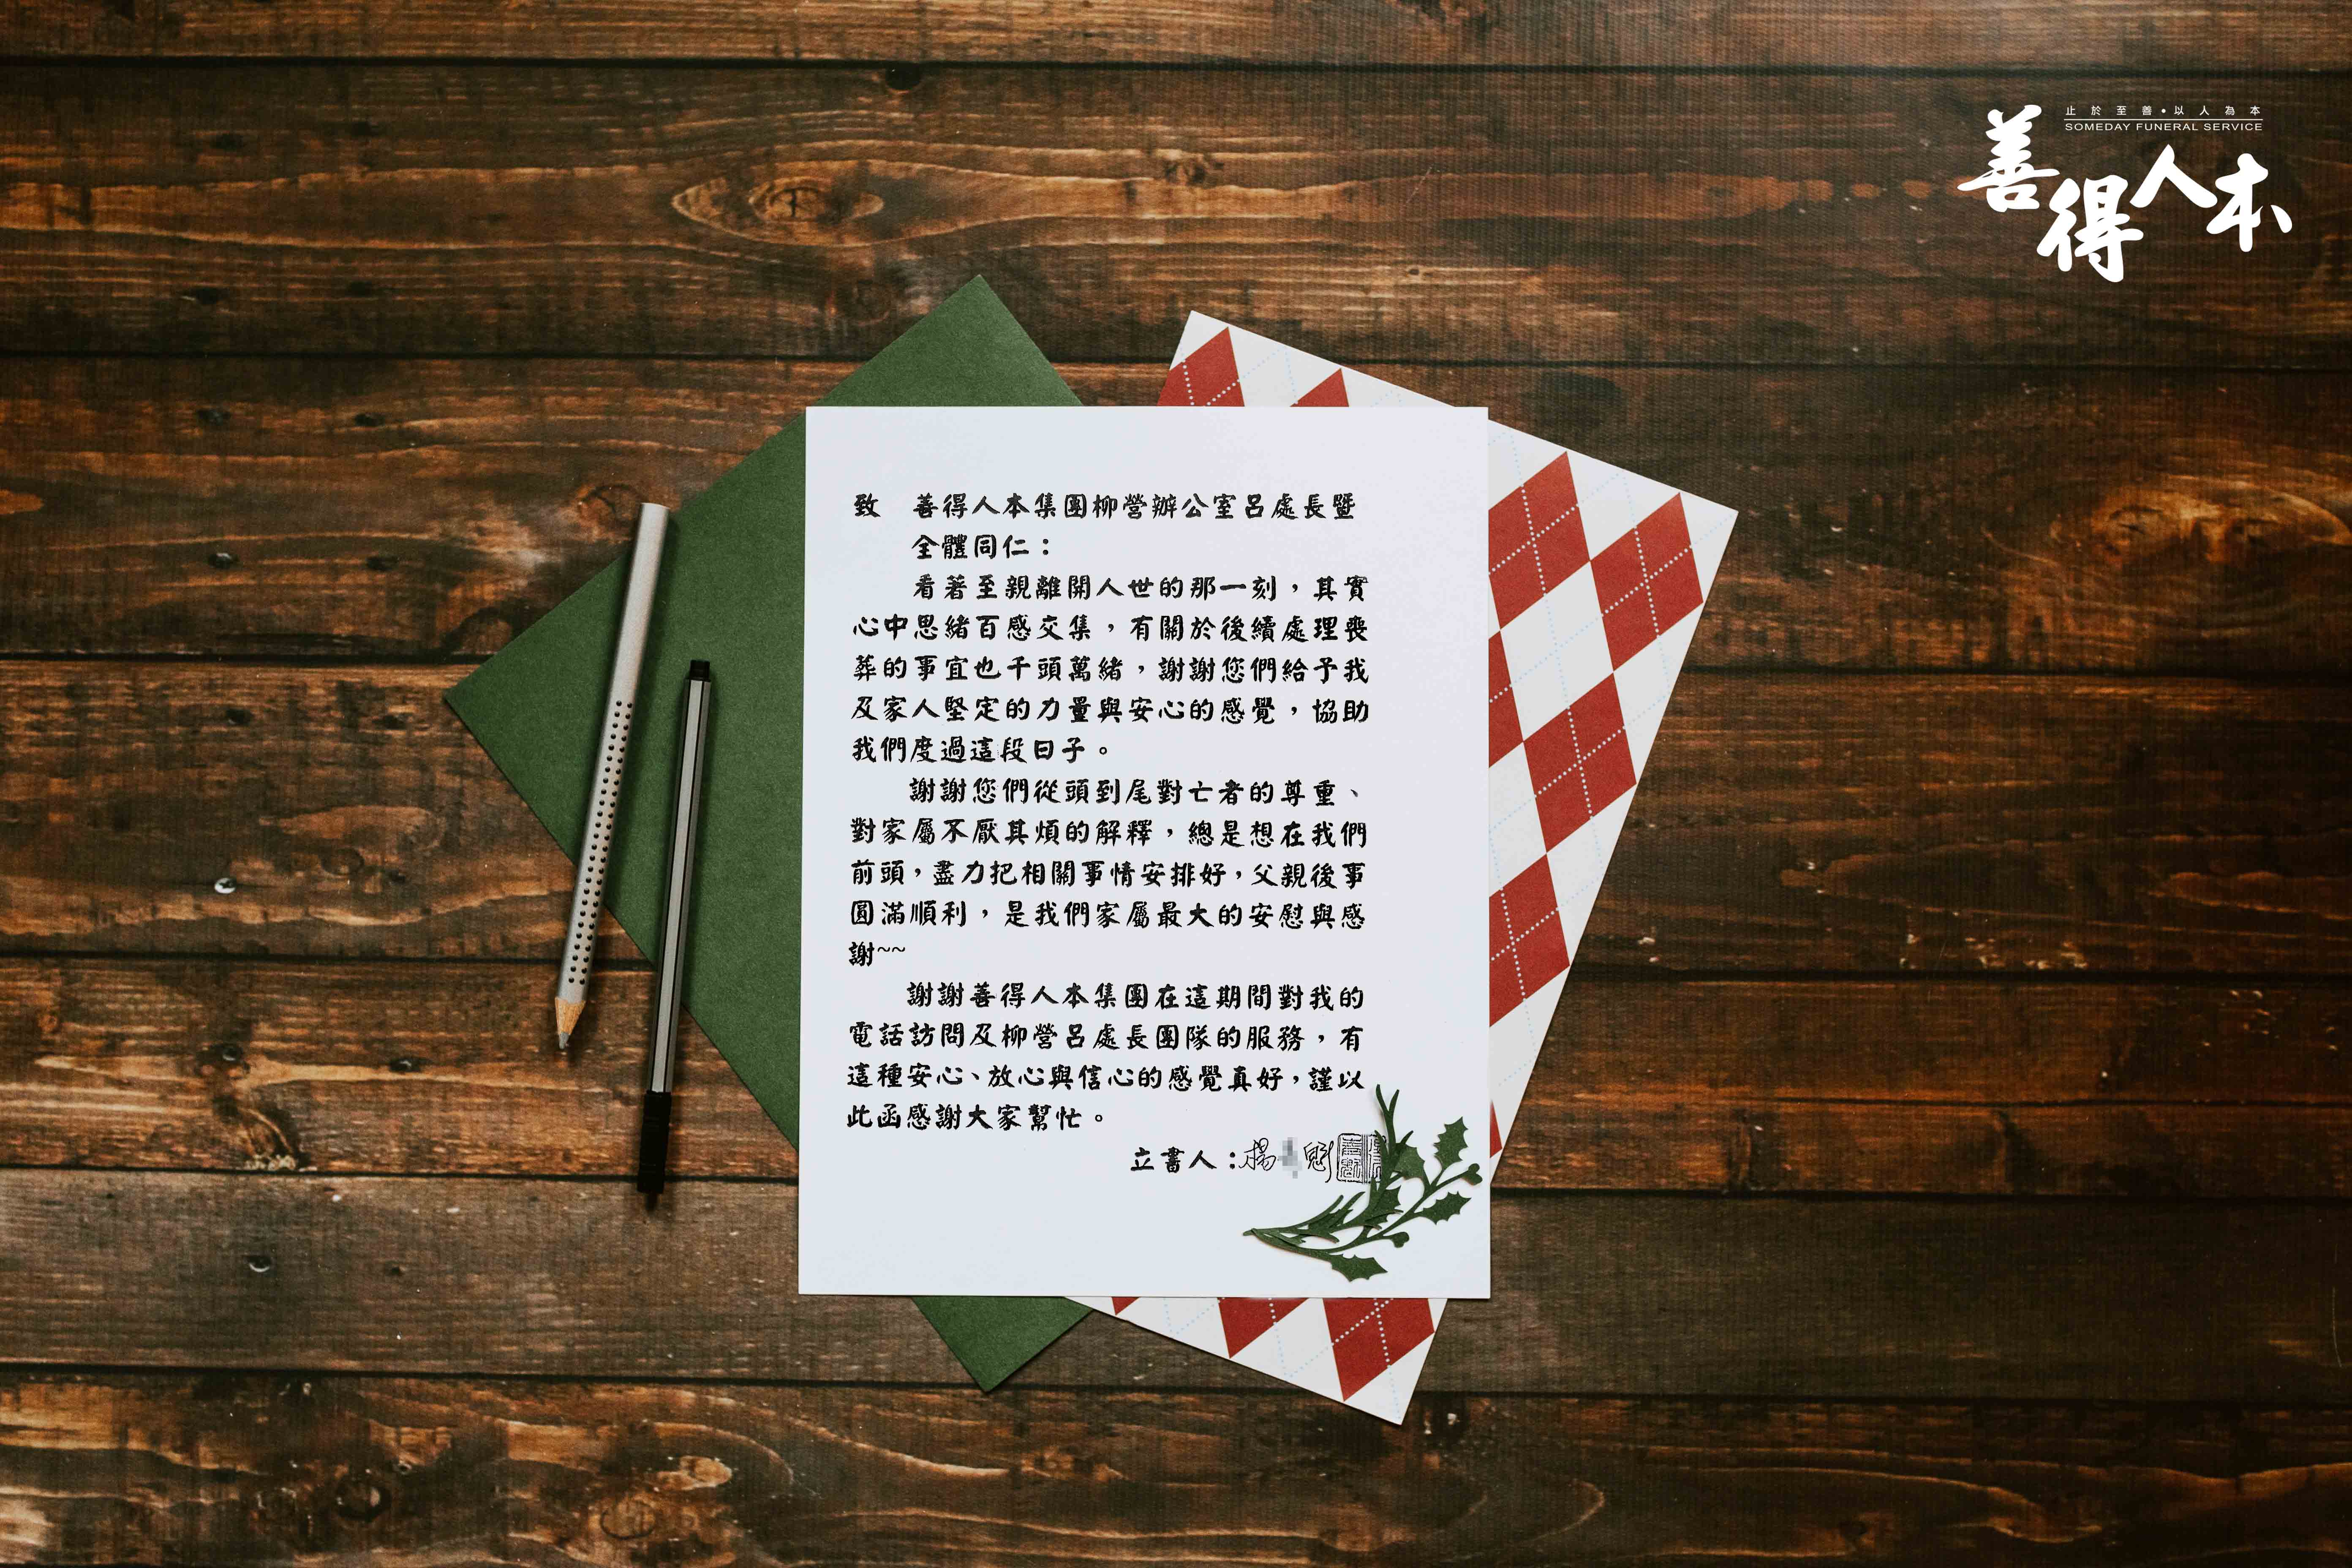 止於至善•以人為本
SOMEDAY FUNERAL SERVICE
善得人本
致　善得人本集團柳營辦公室呂處長暨
全體同仁：
看著至親離開人世的那一刻，其實
心中思緒百感交集，有關於後續處理喪
葬的事宜也千頭萬緒，謝謝您們給予我
及家人堅定的力量與安心的感覺，協助
我們度過這段日子。
謝謝您們從頭到尾對亡者的尊重、
對家屬不厭其煩的解釋，總是想在我們
前頭，盡力把相關事情安排好，父親後事
圓滿順利，是我們家屬最大的安慰與感
謝~~
謝謝善得人本集團在這期間對我的
電話訪問及柳營呂處長團隊的服務，有
這種安心、放心與信心的感覺真好，謹以
此函感謝大家幫忙。
立書人：楊 魁